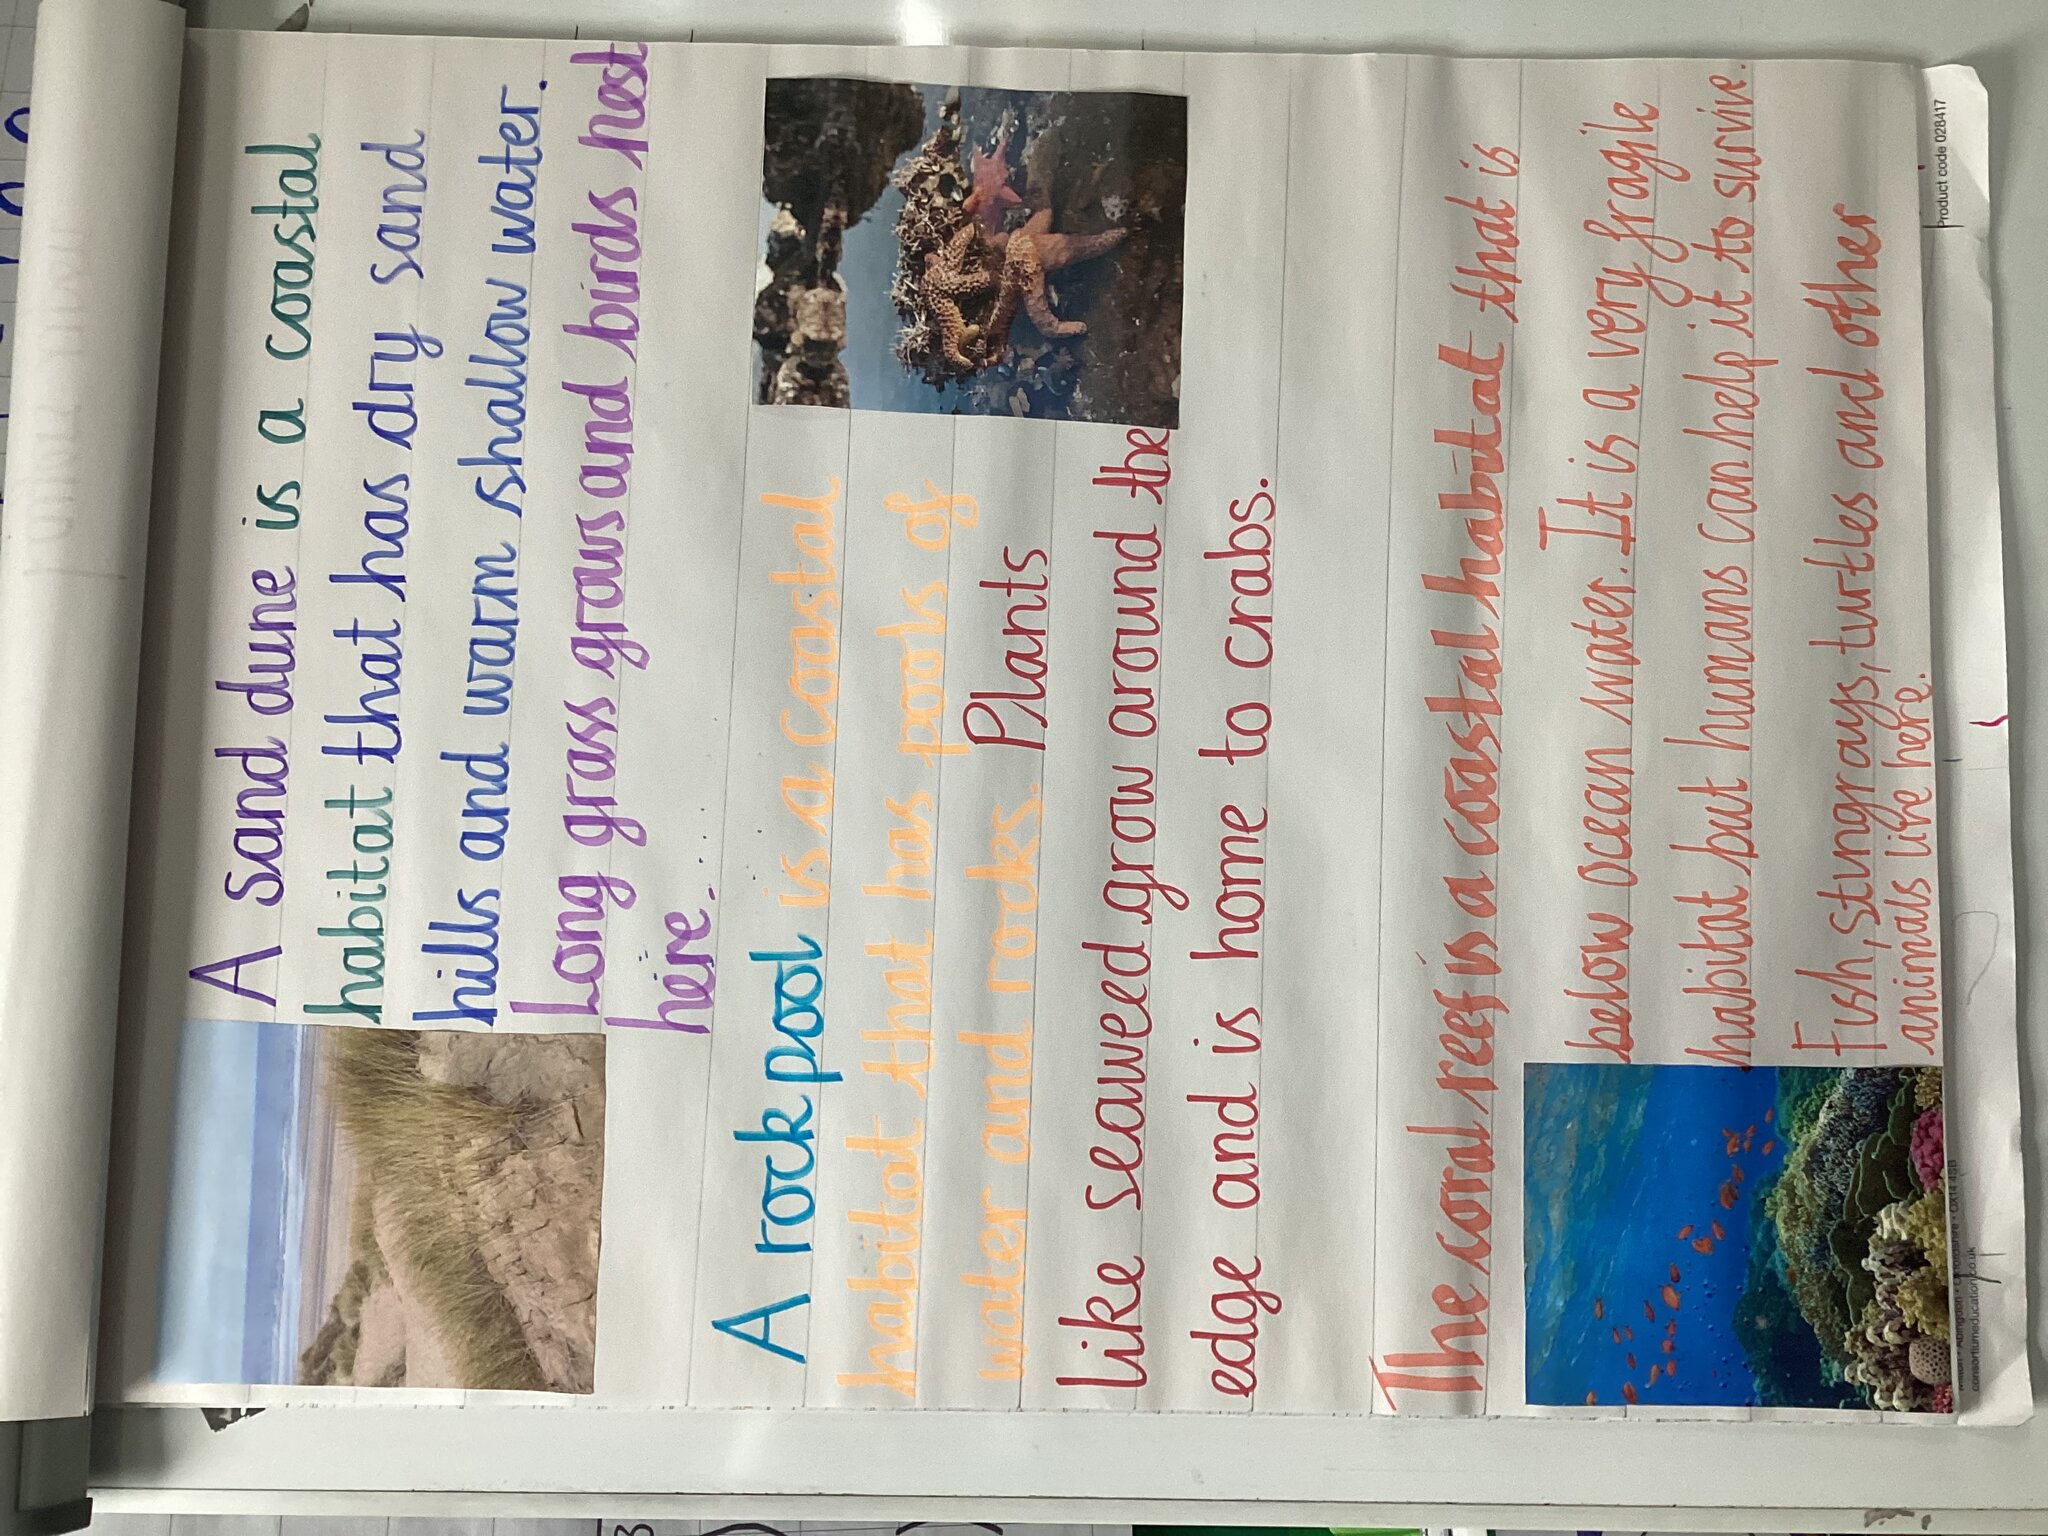 A sand dune is a coastal
habitat that has dry sand
hills and warm shallow water.
Long grass grows and birds nest
here.
A rock pool is a coastal
habitat that has pools of
water and rocks. Plants
like seaweed grow around the
edge and is home to crabs.
The coral reef is a coastal habitat that is
below ocean water. It is a very fragile
habitat but humans can help it to survive.
Fish, stingrays, turtles and other
animals live here.
Milton • Abingdon • Oxfordshire • OX14 4SB
consortiumeducation.co.uk
Product code 028417